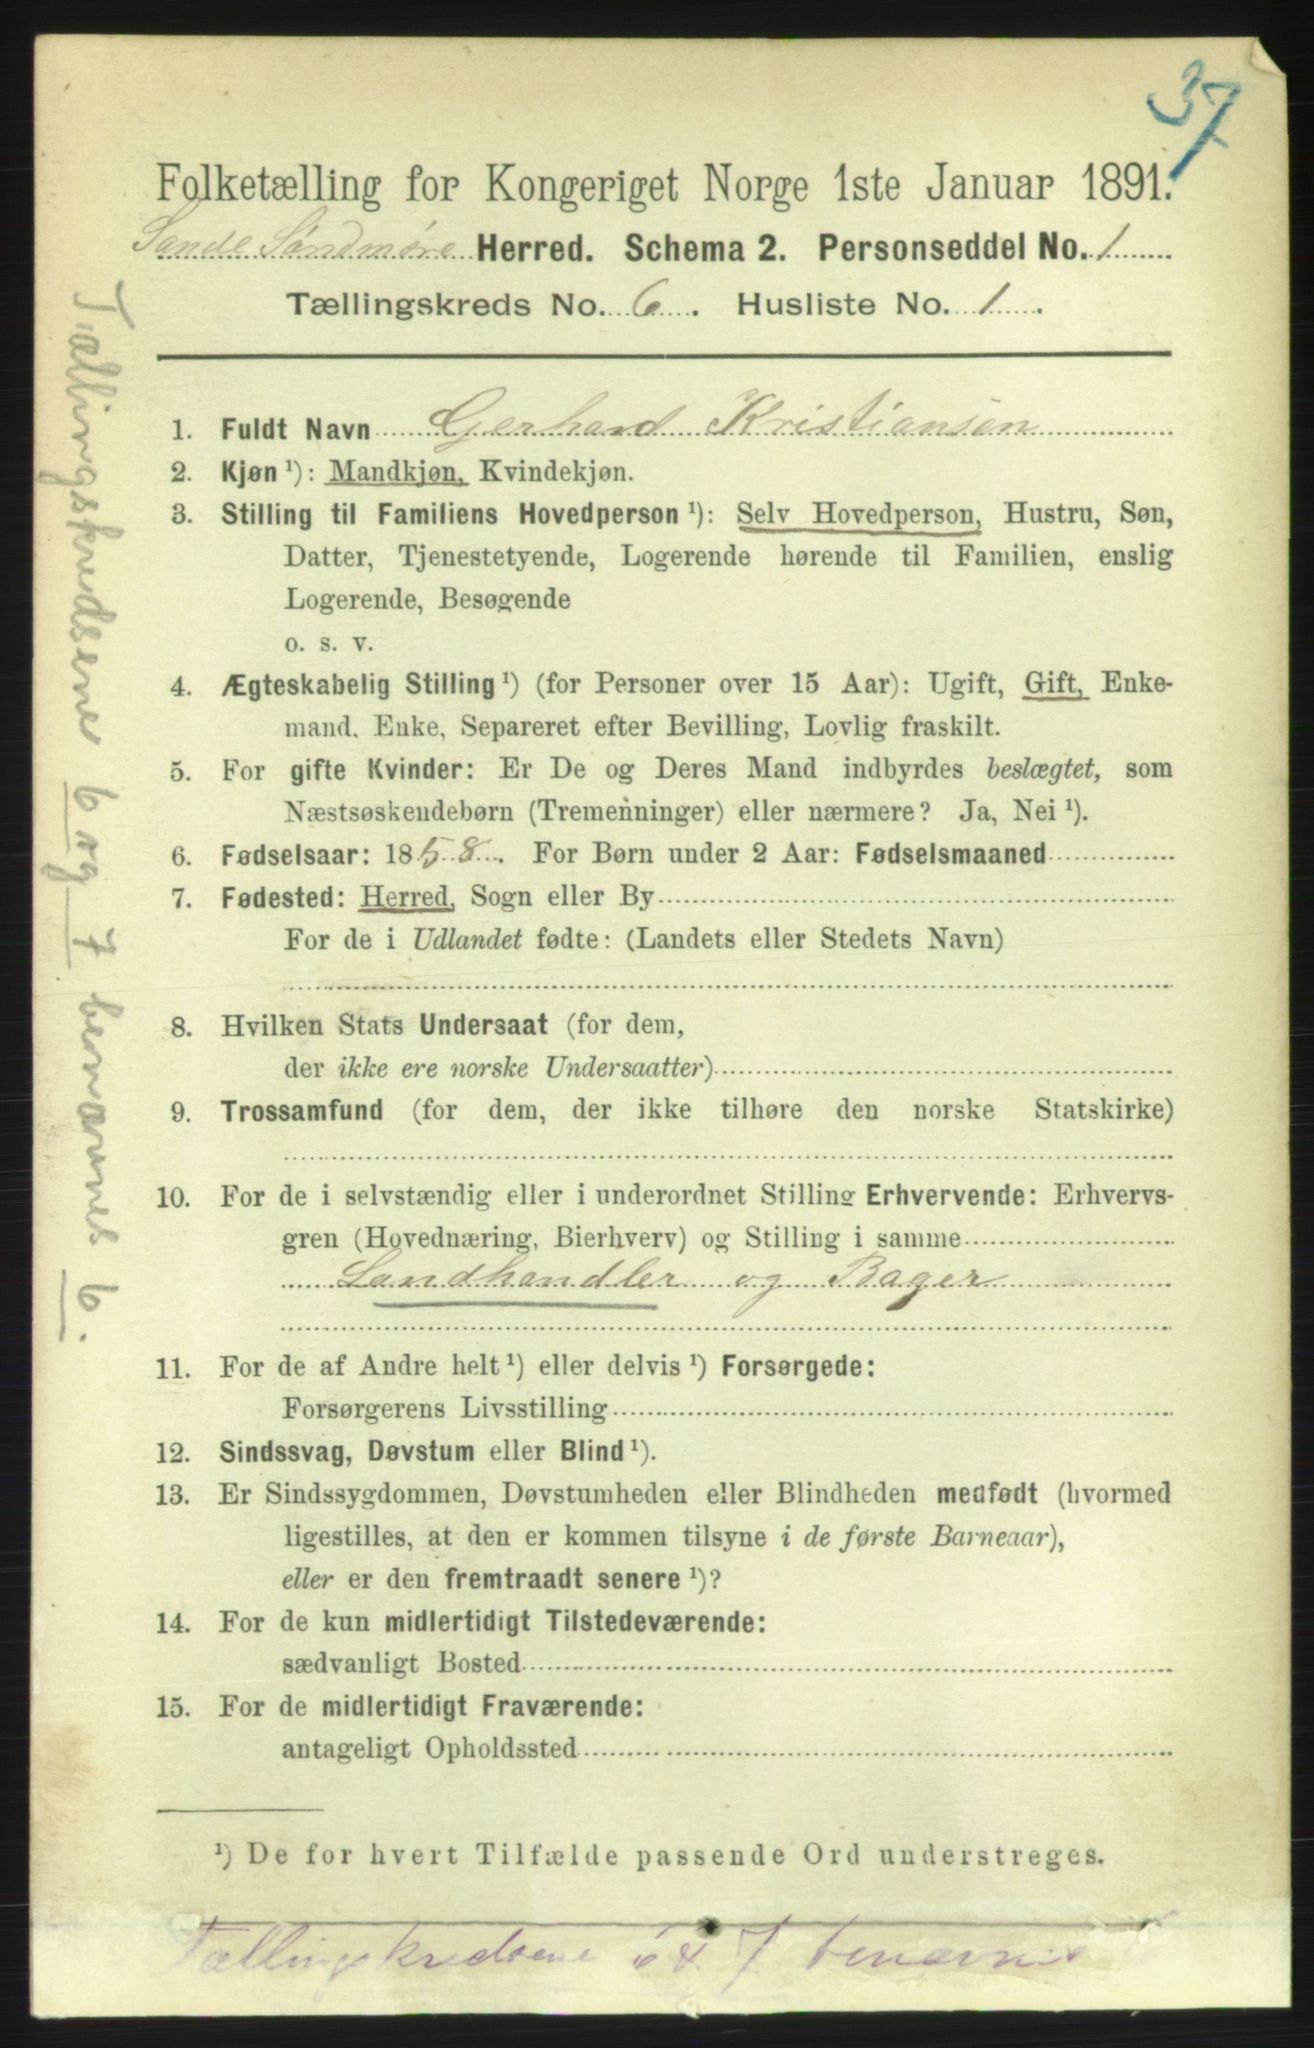 37
Folketælling for Kongeriget Norge 1ste Januar 1891.
Sande Søndmøre Herred. Schema 2. Personseddel No. 1
Tællingskreds No. 6. Husliste No. 1.
1. Fuldt Navn Gerhard Kristiansen
2. Kjøn ¹): Mandkjøn, Kvindekjøn.
3. Stilling til Familiens Hovedperson ¹): Selv Hovedperson, Hustru, Søn,
Datter, Tjenestetyende, Logerende hørende til Familien, enslig
Logerende, Besøgende
o. s. v.
4. Ægteskabelig Stilling ¹) (for Personer over 15 Aar): Ugift, Gift, Enke-
mand, Enke, Separeret efter Bevilling, Lovlig fraskilt.
5. For gifte Kvinder: Er De og Deres Mand indbyrdes beslægtet, som
Næstsøskendebørn (Tremenninger) eller nærmere? Ja, Nei ¹).
6. Fødselsaar: 1858. For Børn under 2 Aar: Fødselsmaaned
7. Fødested: Herred, Sogn eller By
For de i Udlandet fødte: (Landets eller Stedets Navn)
8. Hvilken Stats Undersaat (for dem,
der ikke ere norske Undersaatter)
9. Trossamfund (for dem, der ikke tilhøre den norske Statskirke)
10. For de i selvstændig eller i underordnet Stilling Erhvervende: Erhvervs-
gren (Hovednæring, Bierhverv) og Stilling i samme
Landhandler og Bager
11. For de af Andre helt ¹) eller delvis ¹) Forsørgede:
Forsørgerens Livsstilling
12. Sindssvag, Døvstum eller Blind ¹).
13. Er Sindssygdommen, Døvstumheden eller Blindheden medfødt (hvormed
ligestilles, at den er kommen tilsyne i de første Barneaar),
eller er den fremtraadt senere ¹)?
14. For de kun midlertidigt Tilstedeværende:
sædvanligt Bosted
15. For de midlertidigt Fraværende:
antageligt Opholdssted
¹) De for hvert Tilfælde passende Ord understreges.
Tællingskredsene 6 & 7 benævnes
Tællingskredsene 6 og 7 benævnes 6.